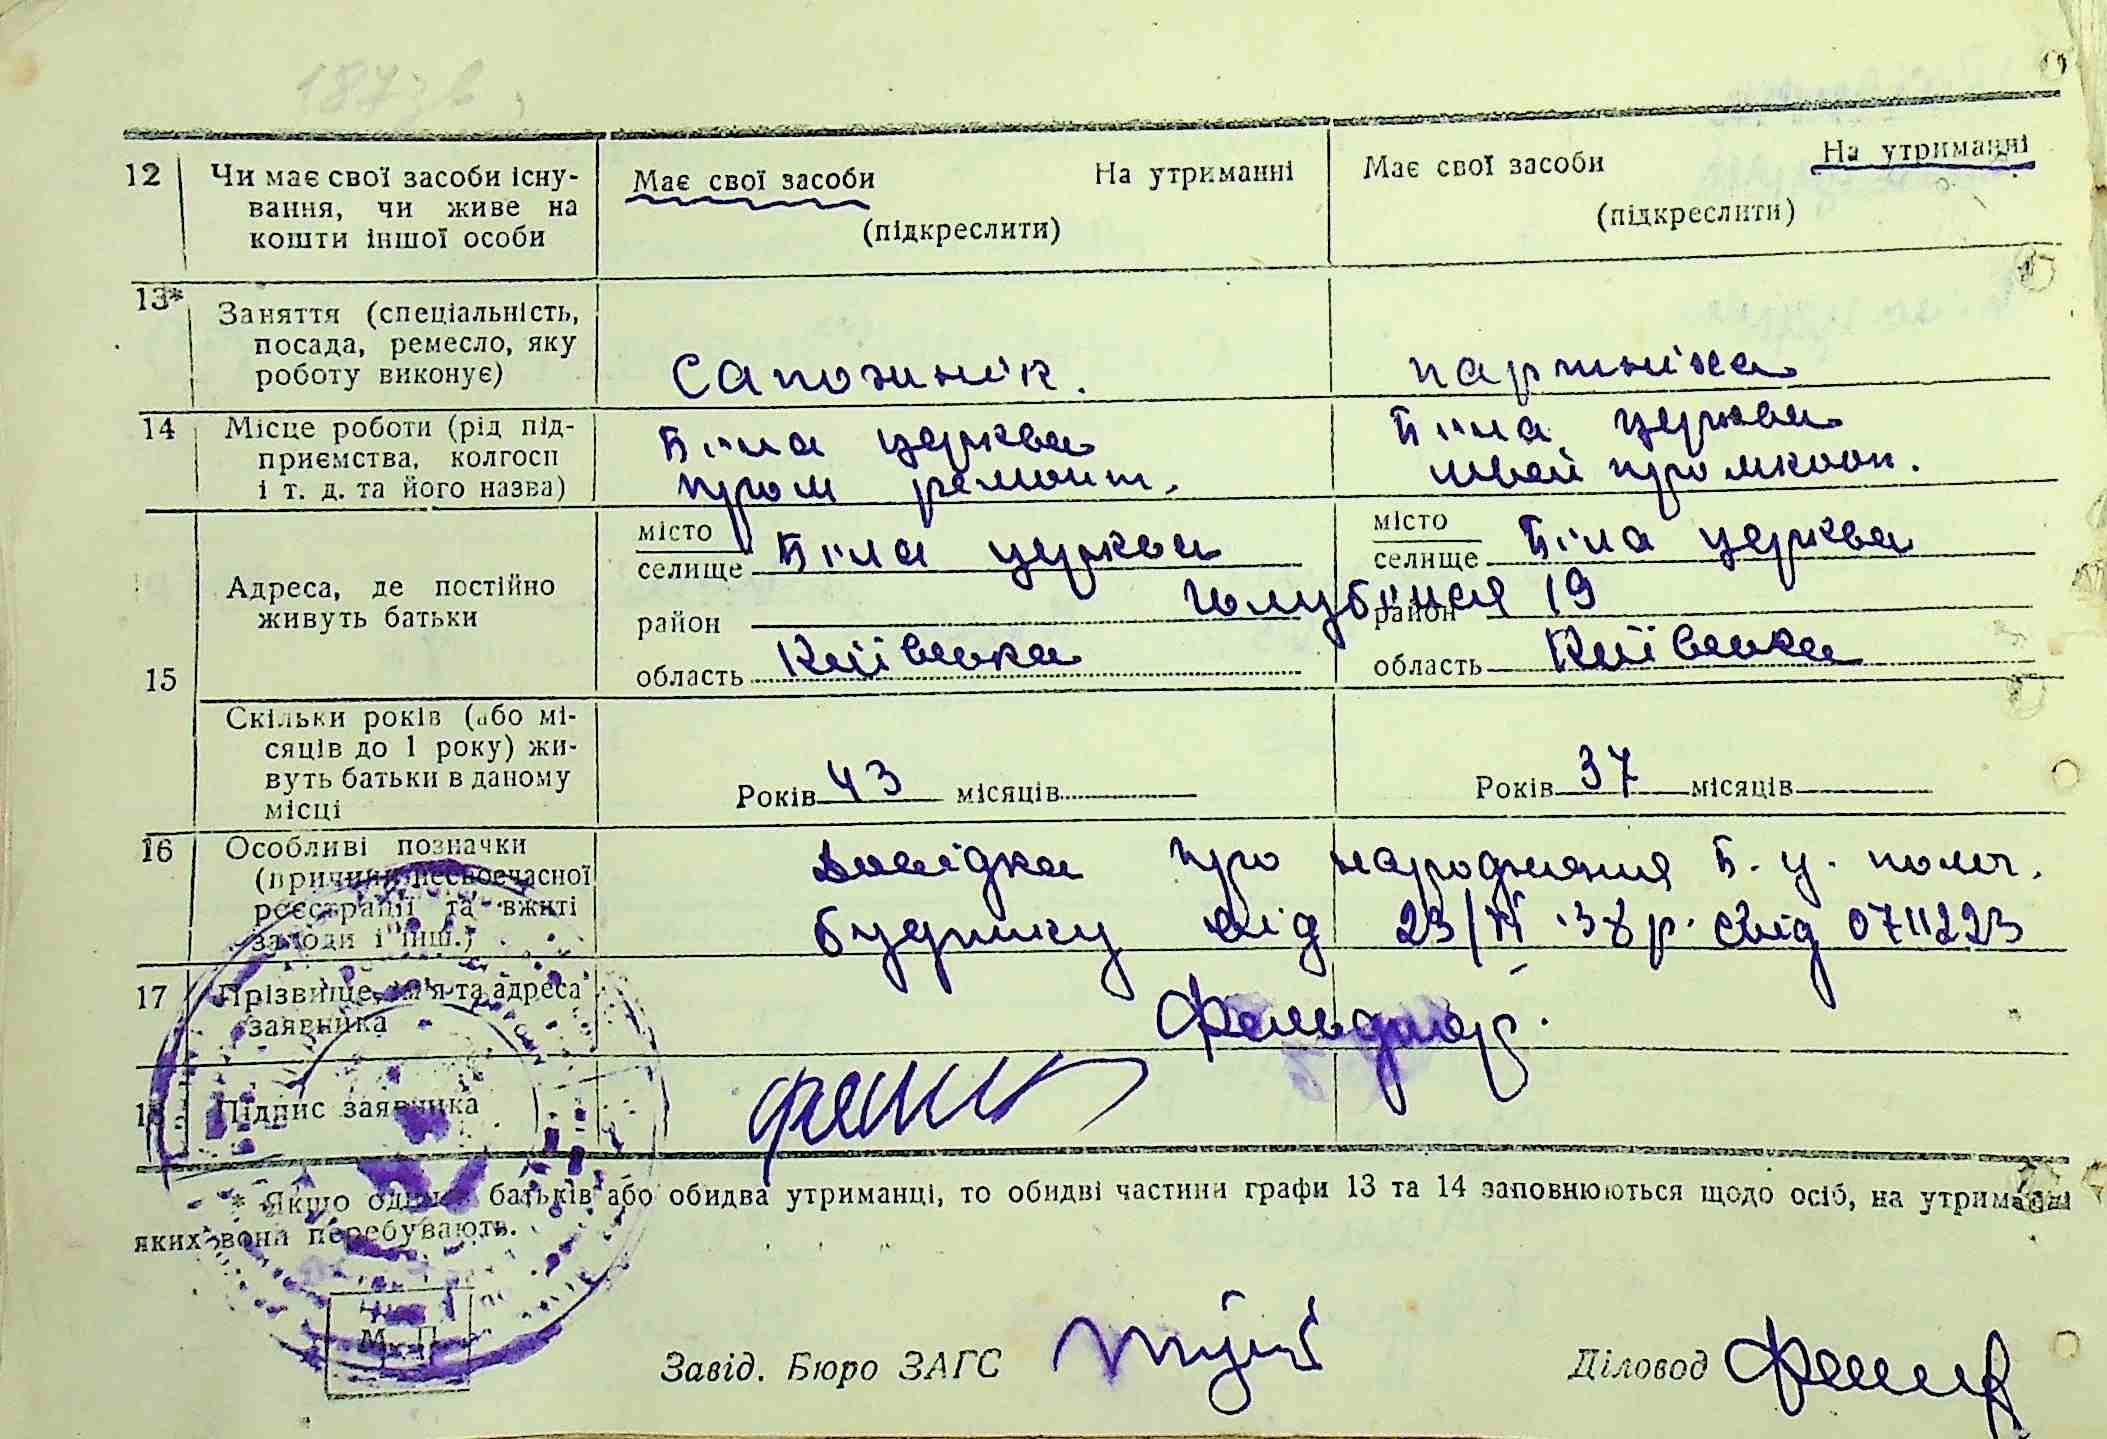 187 зв.
12 Чи має свої засоби існу-
вання, чи живе на
кошти іншої особи
Має свої засоби На утриманні
(підкреслити)
Має свої засоби На утриманні
(підкреслити)
13* Заняття (спеціальність,
посада, ремесло, яку
роботу виконує)
Сапожнік.
партніха
14 Місце роботи (рід під-
приємства, колгосп
і т. д. та його назва)
Біла церква
пром ремонт.
Біла церква
швей промкооп.
15 Адреса, де постійно
живуть батьки
місто
селище Біла церква
район
область Київська
місто
селище Біла церква
район 19
область Київська
Скільки років (або мі-
сяців до 1 року) жи-
вуть батьки в даному
місці
Років 43 місяців
Років 37 місяців
16 Особливі позначки
(причини несвоєчасної
реєстрації та вжиті
заходи і інш.)
Довідка про народження Б. ц. полог.
будинку від 23/ .38 р. свід 0711223
17 Прізвище, ім'я та адреса
заявника
18 Підпис заявника
* Якщо один з батьків або обидва утриманці, то обидві частини графи 13 та 14 заповнюються щодо осіб, на утриманні
яких вони перебувають.
М. П.
Завід. Бюро ЗАГС
Діловод